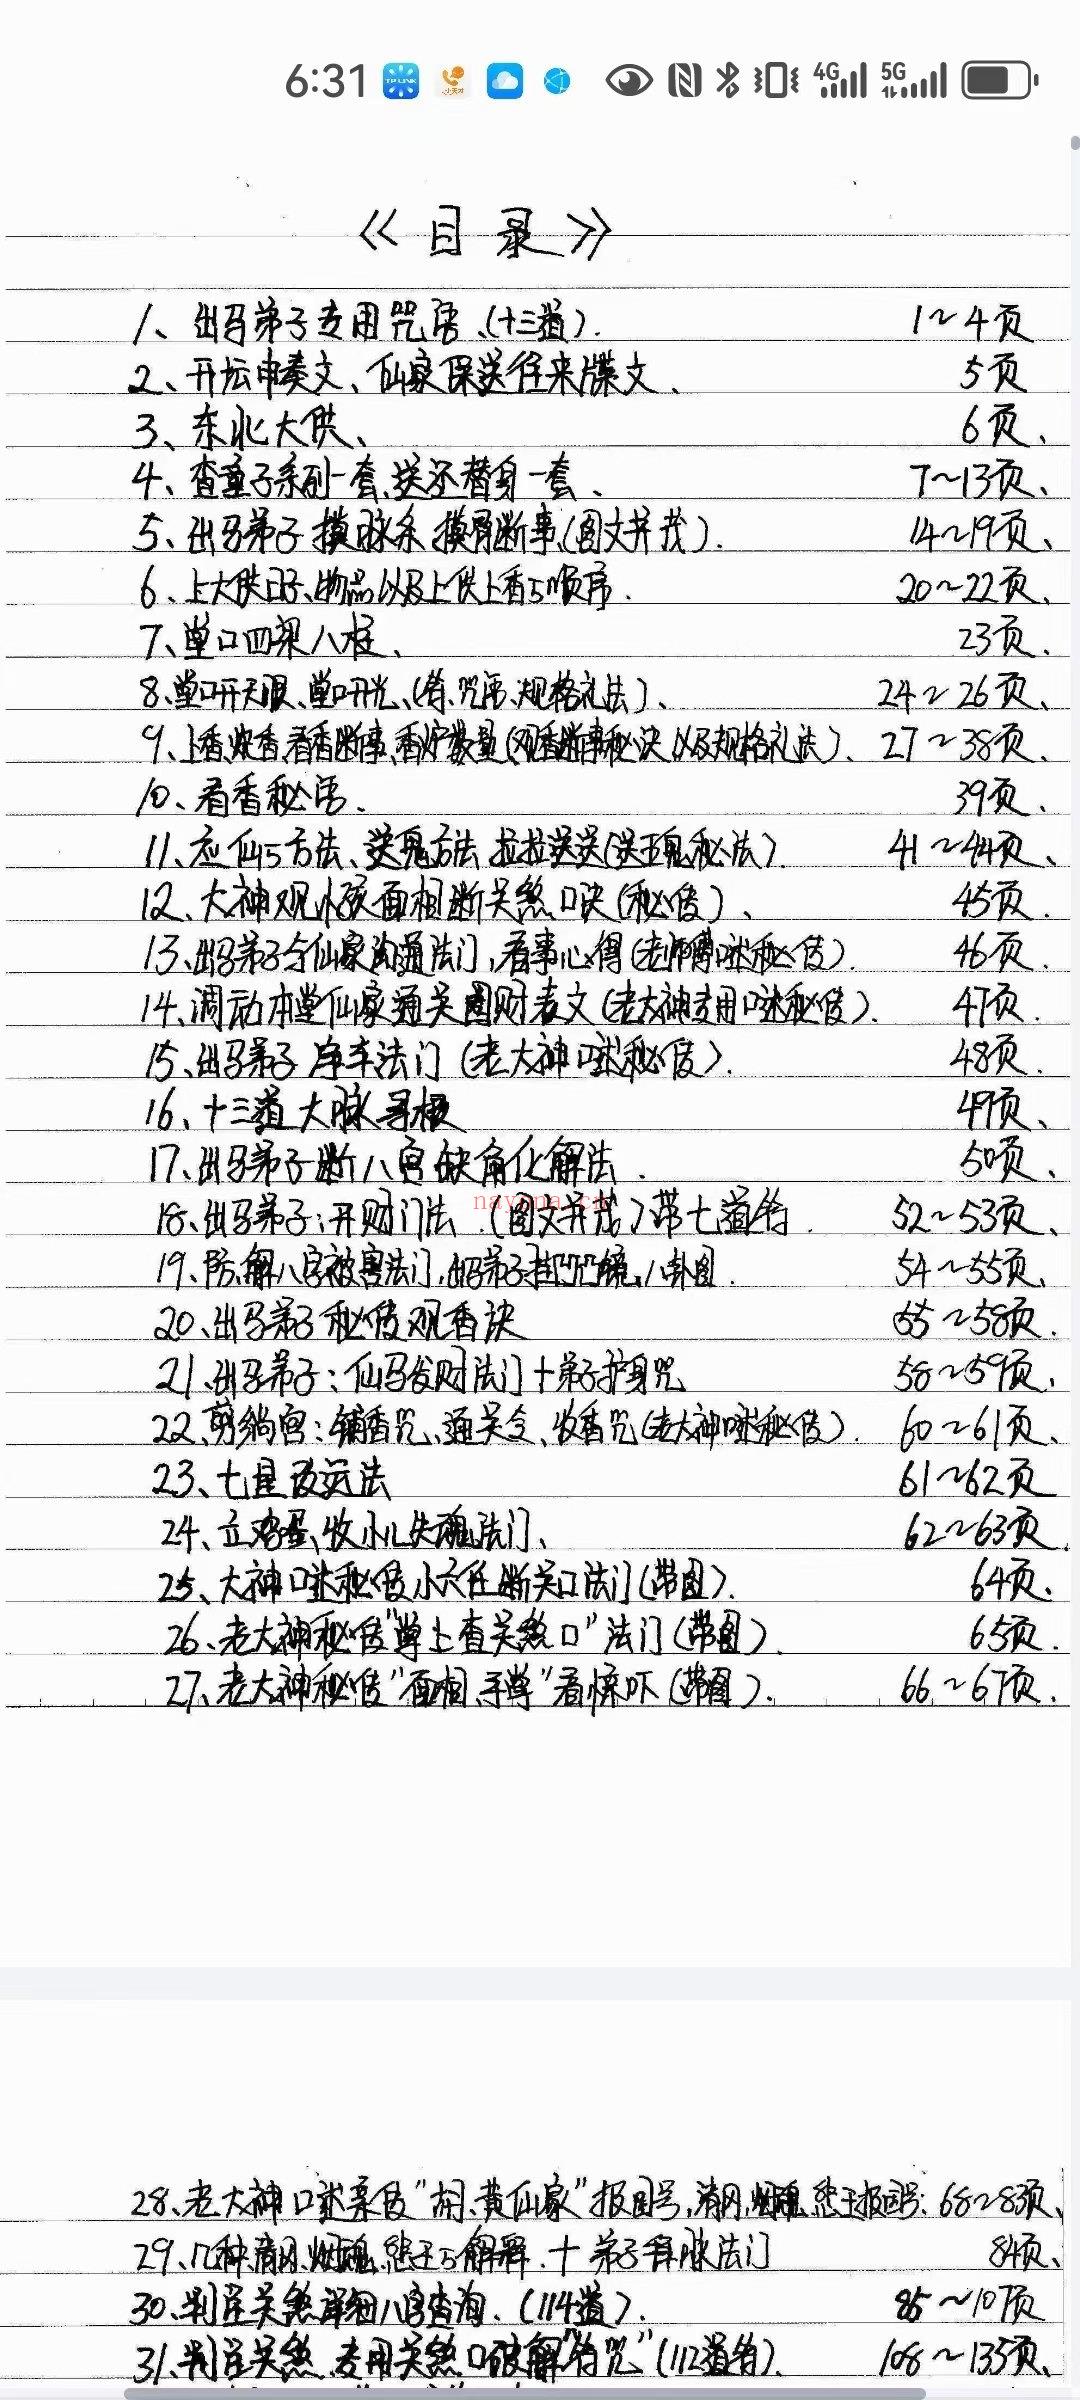 6:31
4G 5G
《目录》
1、出马弟子专用咒语、(十三道). 1~4页
2、开坛申奏文、仙家保送往来牒文、 5页
3、东北大供、 6页、
4、查童子系列一套、送还替身一套、 7~13页、
5、出马弟子摸脉条、摸骨断事(图文并茂). 14~19页、
6、上大供日子、物品以及上供上香与顺序. 20~22页、
7、堂口四梁八柱、 23页.
8、堂口开天眼、堂口开光、(符、咒语、规格礼法)、 24~26页、
9、上香、炊香、看香断事、香炉数量(观香断事秘诀以及规格礼法). 27~38页、
10、看香秘语. 39页.
11、应仙与方法、送鬼方法、拉拉送送(送五鬼秘法). 41~44页、
12、大神观小孩面相断关煞口诀(秘传)、 45页.
13、出马弟子与仙家沟通法门,看事心得(老师傅口述秘传). 46页.
14、调动本堂仙家通关圆财表文(老大神专用口述秘传). 47页.
15、出马弟子净车法门(老大神口述秘传). 48页.
16、十三道大脉寻根 49页、
17、出马弟子断八宫缺角化解法. 50页、
18、出马弟子:开财门法.(图文并茂)带七道符. 52~53页、
19、防、解八字被害法门,出马弟子挂咒镜,八卦图. 54~55页、
20、出马弟子秘传观香诀 55~58页.
21、出马弟子:仙马发财法门+弟子护身咒 58~59页.
22、剪绱宫:铺香咒、通关令、收香咒(老大神口述秘传). 60~61页、
23、七星改运法 61~62页
24、立鸡蛋、收小儿失魂法门、 62~63页.
25、大神口述秘传小六任断关口法门(带图). 64页.
26、老大神秘传"掌上查关煞口"法门(带图). 65页.
27、老大神秘传"面相、手掌"看惊吓(带图). 66~67页.
nayona.cn
28、老大神口述亲传"胡、黄仙家"报国号,清风,烟魂,悲王报国号: 68~83页、
29、几种清风,烟魂,悲王与解释.十弟子拿脉法门 84页、
30、判官关煞详细八字查询.(114道). 85~107页
31、判官关煞、专用关煞口破解"符咒"(112道符). 108~135页、